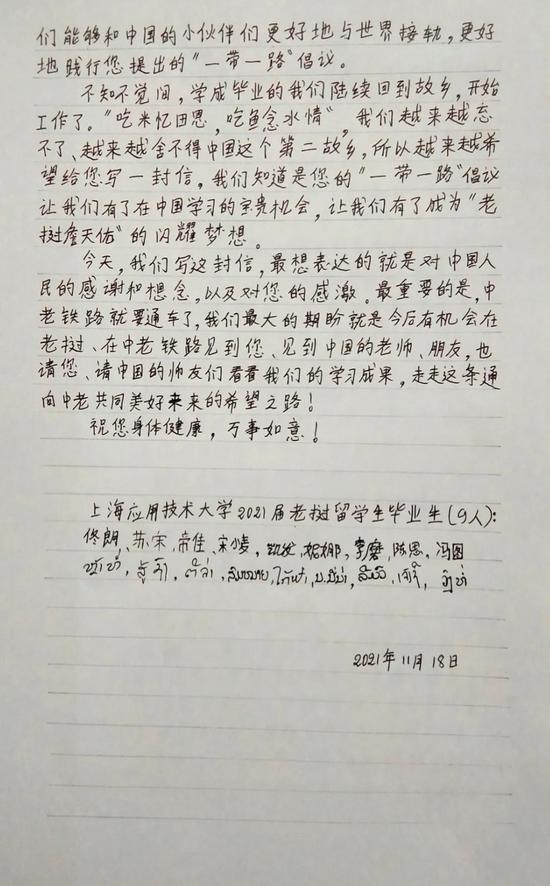 们能够和中国的小伙伴们更好地与世界接轨,更好
地践行您提出的"一带一路"倡议。
不知不觉间,学成毕业的我们陆续回到故乡,开始
工作了。"吃米忆田恩,吃鱼念水情",我们越来越忘
不了、越来越舍不得中国这个第二故乡,所以越来越希
望给您写一封信,我们知道是您的"一带一路"倡议
让我们有了在中国学习的宝贵机会,让我们有了成为"老
挝詹天佑"的闪耀梦想。
今天,我们写这封信,最想表达的就是对中国人
民的感谢和想念,以及对您的感激。最重要的是,中
老铁路就要通车了,我们最大的期盼就是今后有机会在
老挝、在中老铁路见到您、见到中国的老师、朋友,也
请您、请中国的师友们看看我们的学习成果,走走这条通
向中老共同美好未来的希望之路!
祝您身体健康,万事如意!
上海应用技术大学2021届老挝留学生毕业生(9人):
佟朗、苏宋、帝佳、宋小凌,妮娜,李磨,陈思,冯图
2021年11月18日